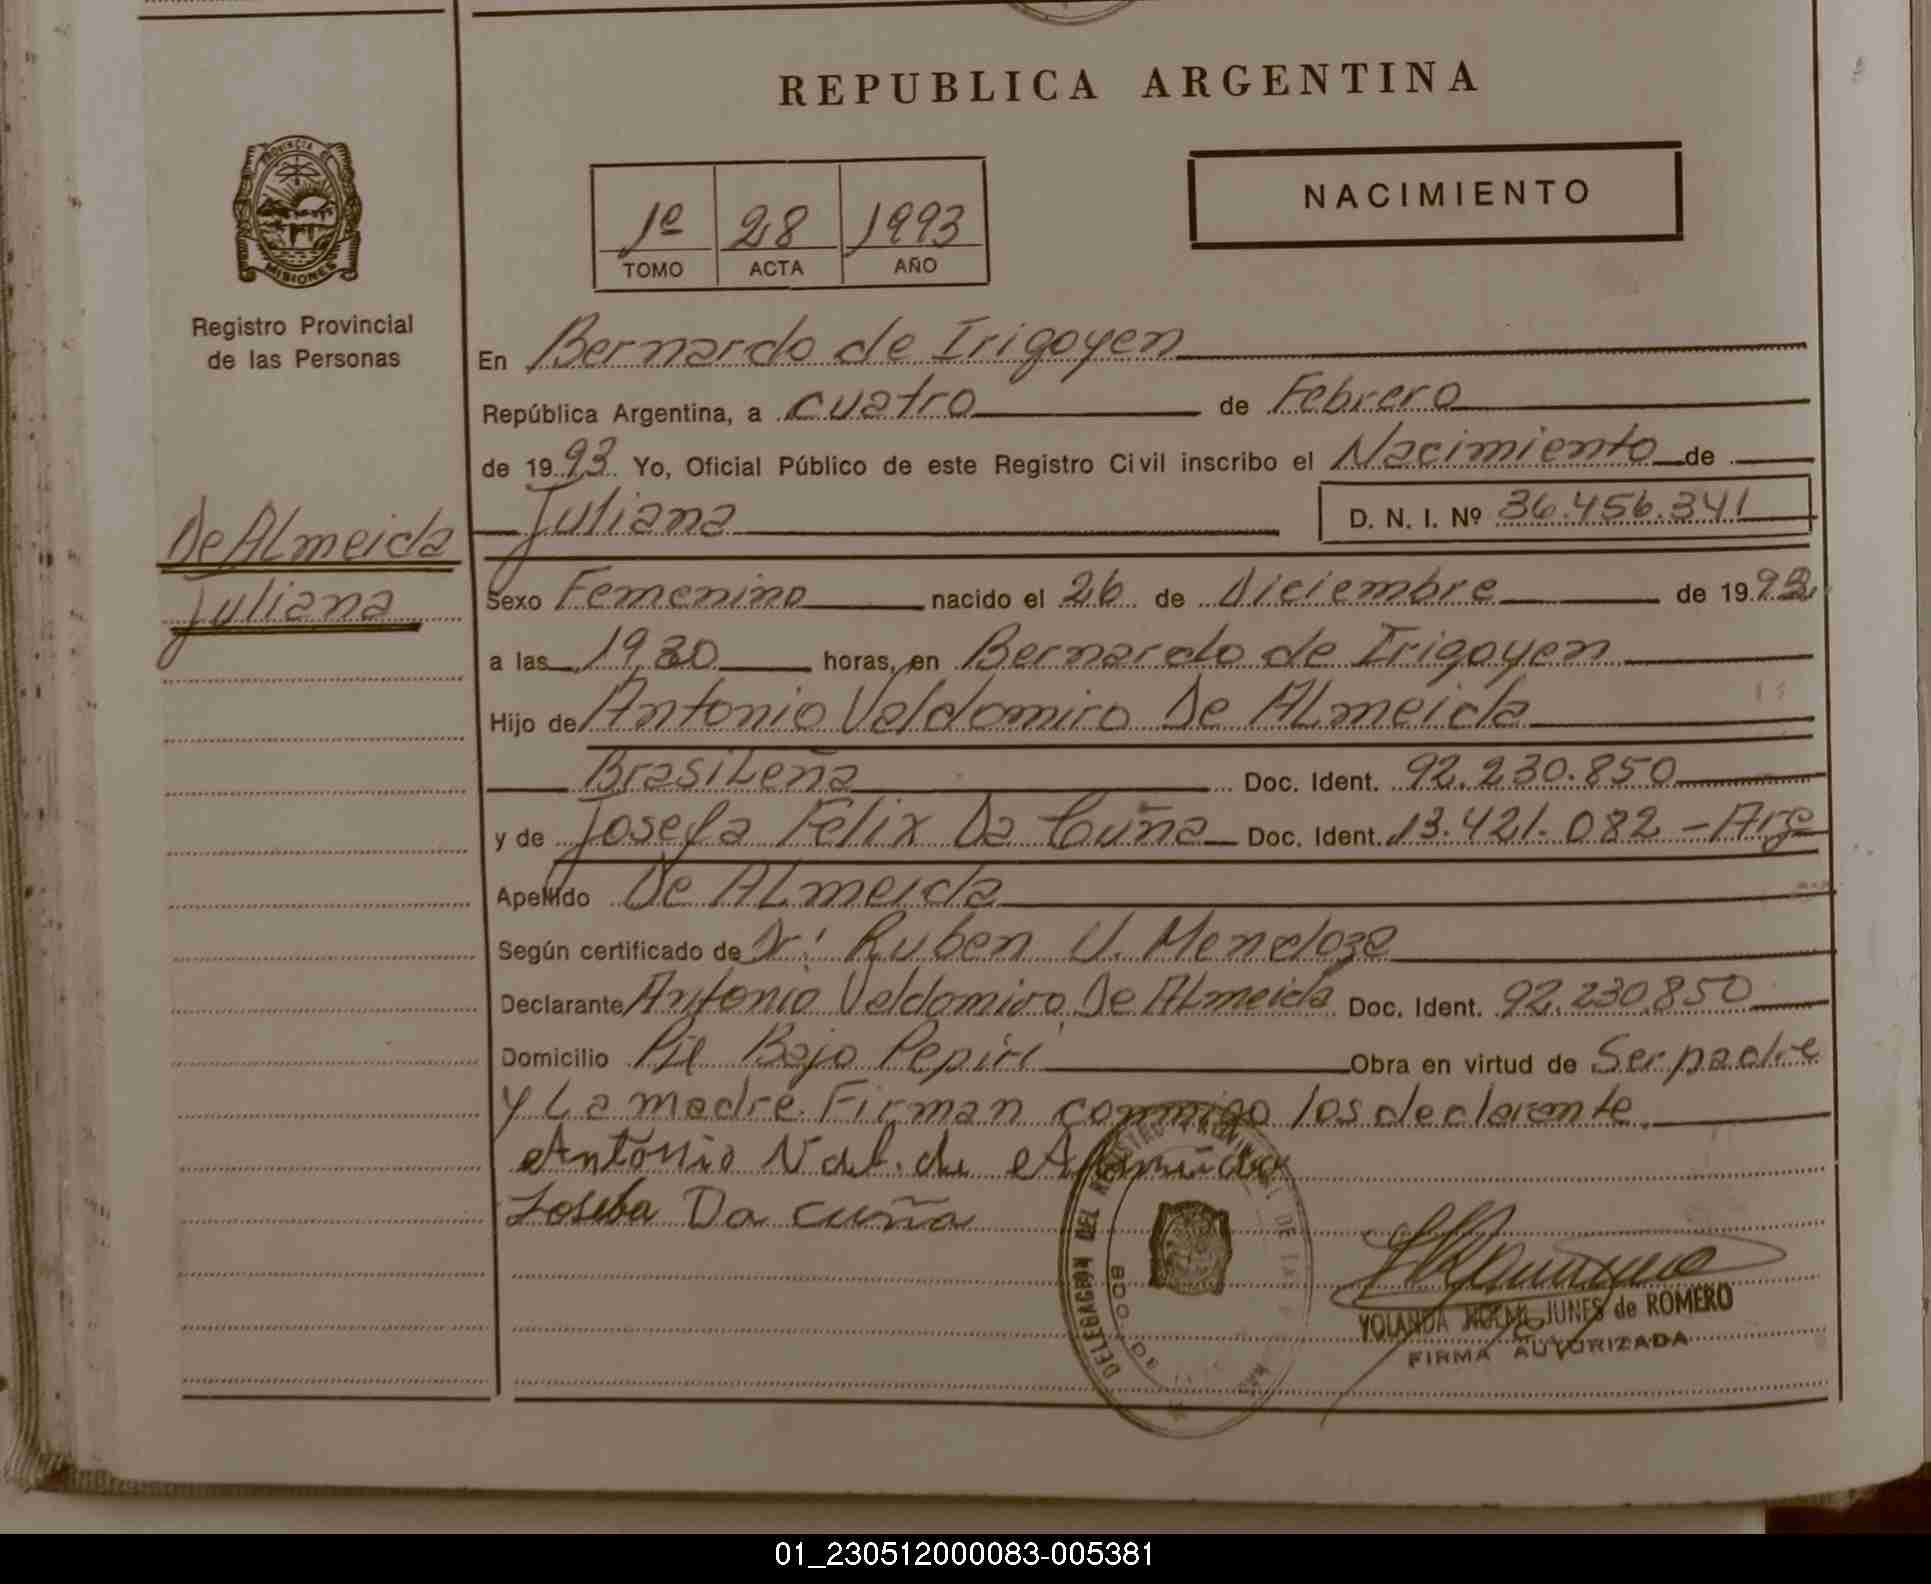 REPUBLICA ARGENTINA
PROVINCIA DE
MISIONES
Registro Provincial
de las Personas
1º 28 1993
TOMO ACTA AÑO
NACIMIENTO
En Bernardo de Irigoyen
República Argentina, a cuatro de Febrero
de 1993 Yo, Oficial Público de este Registro Civil inscribo el Nacimiento de
Juliana D. N. I. Nº 36.456.341
De ALmeida
Juliana
Sexo Femenino nacido el 26 de Diciembre de 1992
a las 19,30 horas, en Bernardo de Irigoyen
Hijo de Antonio Valdomiro De ALmeida
BrasiLeña Doc. Ident. 92.230.850
y de Josefa Felix Da Cuña Doc. Ident. 13.421.082 - Arg
Apellido De ALmeida
Según certificado de Dr: Ruben U. Mendoza
Declarante Antonio Valdomiro De ALmeida Doc. Ident. 92.230.850
Domicilio Pje Bajo Pepiri Obra en virtud de Ser padre
y La madre. Firman conmigo los declarante.
Antonio Val. de Almeida
Joseba Da cuña
DELEGACION DEL REGISTRO PROVINCIAL DE LA
BDO. DE
YOLANDA NOEMI JUNES de ROMERO
FIRMA AUTORIZADA
01_230512000083-005381